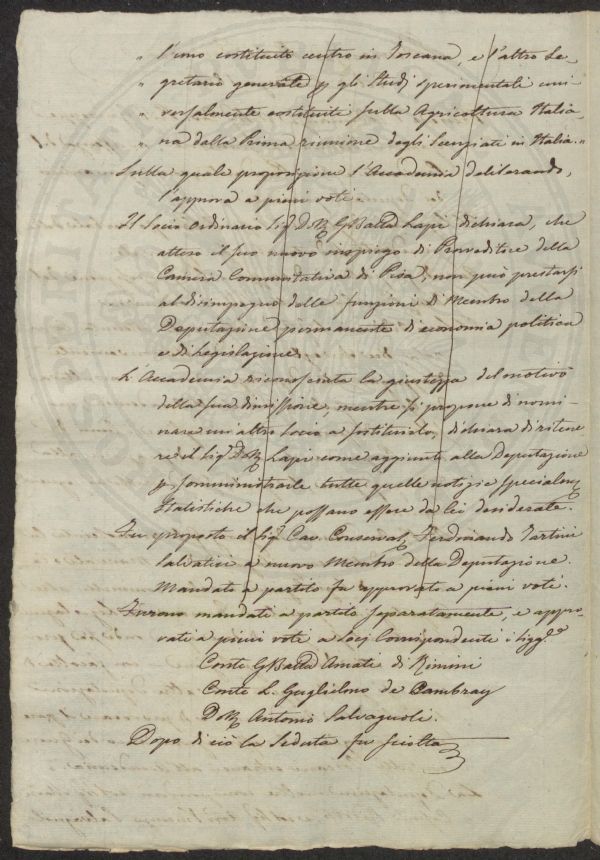 " l'uno costituito centro in Toscana, e l'altro Se-
" gretario generale p gli Studj sperimentali uni-
" versalmente costituiti sulla Agricoltura Italia-
" na dalla Prima riunione degli Scenziati in Italia. "
Sulla quale proposizione l'Accademia deliberando,
l'approva a pieni voti.
Il Socio ordinario Sig. Dott. GBatta Lapi dichiara, che
atteso il suo nuovo impiego di Provveditore della
Camera Comunitativa di Pisa, non può prestarsi
al disimpegno delle funzioni di Membro della
Deputazione permanente di economia politica
e di Legislazione.
L'Accademia riconosciuta la giustezza del motivo
della sua dimissione, mentre si propone di nomi-
nare un altro Socio a sostituirlo, dichiara di ritene-
re del Sigr Dott Lapi come aggiunto alla Deputazione
p somministrarle tutte quelle notizie specialmte
Statistiche che possano essere da lei desiderate.
Fu proposto il Sigr Cav. Conserval Ferdinando Tartini
Salvatici a nuovo Membro della Deputazione.
Mandato a partito fu approvato a pieni voti.
Furono mandati a partito separatamente, e appro-
vati a pieni voti a Socj Corrispondenti i Sigg.ri
Conte GBatta Amati di Rimini
Conte L. Guglielmo de Cambray
Dott Antonio Salvagnoli.
Dopo di ciò la Seduta fu sciolta